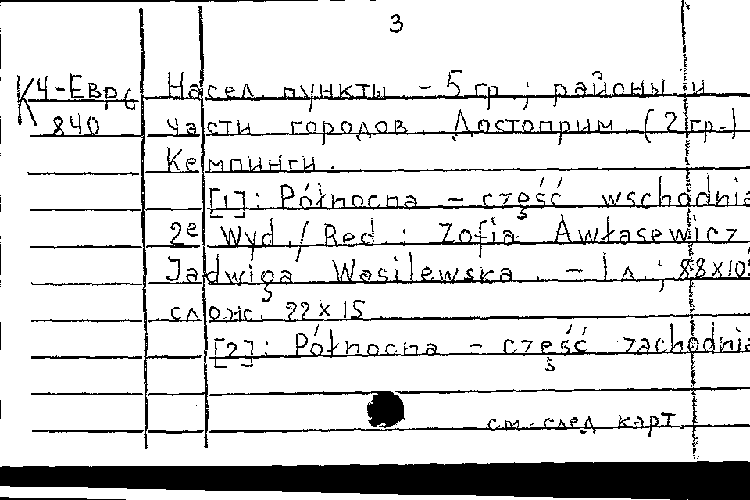 3
К4-Евр6 Насел. пункты - 5 гр.; районы и
840 части городов. Достоприм (2 гр.)
Кемпинги.
[1]: Północna - część wschodnia
2e Wyd./ Red.: Zofia Awłasewicz
Jadwiga Wasilewska. - 1 л.; 88x105
слож. 22x15
[2]: Północna - część zachodnia
см. след карт.